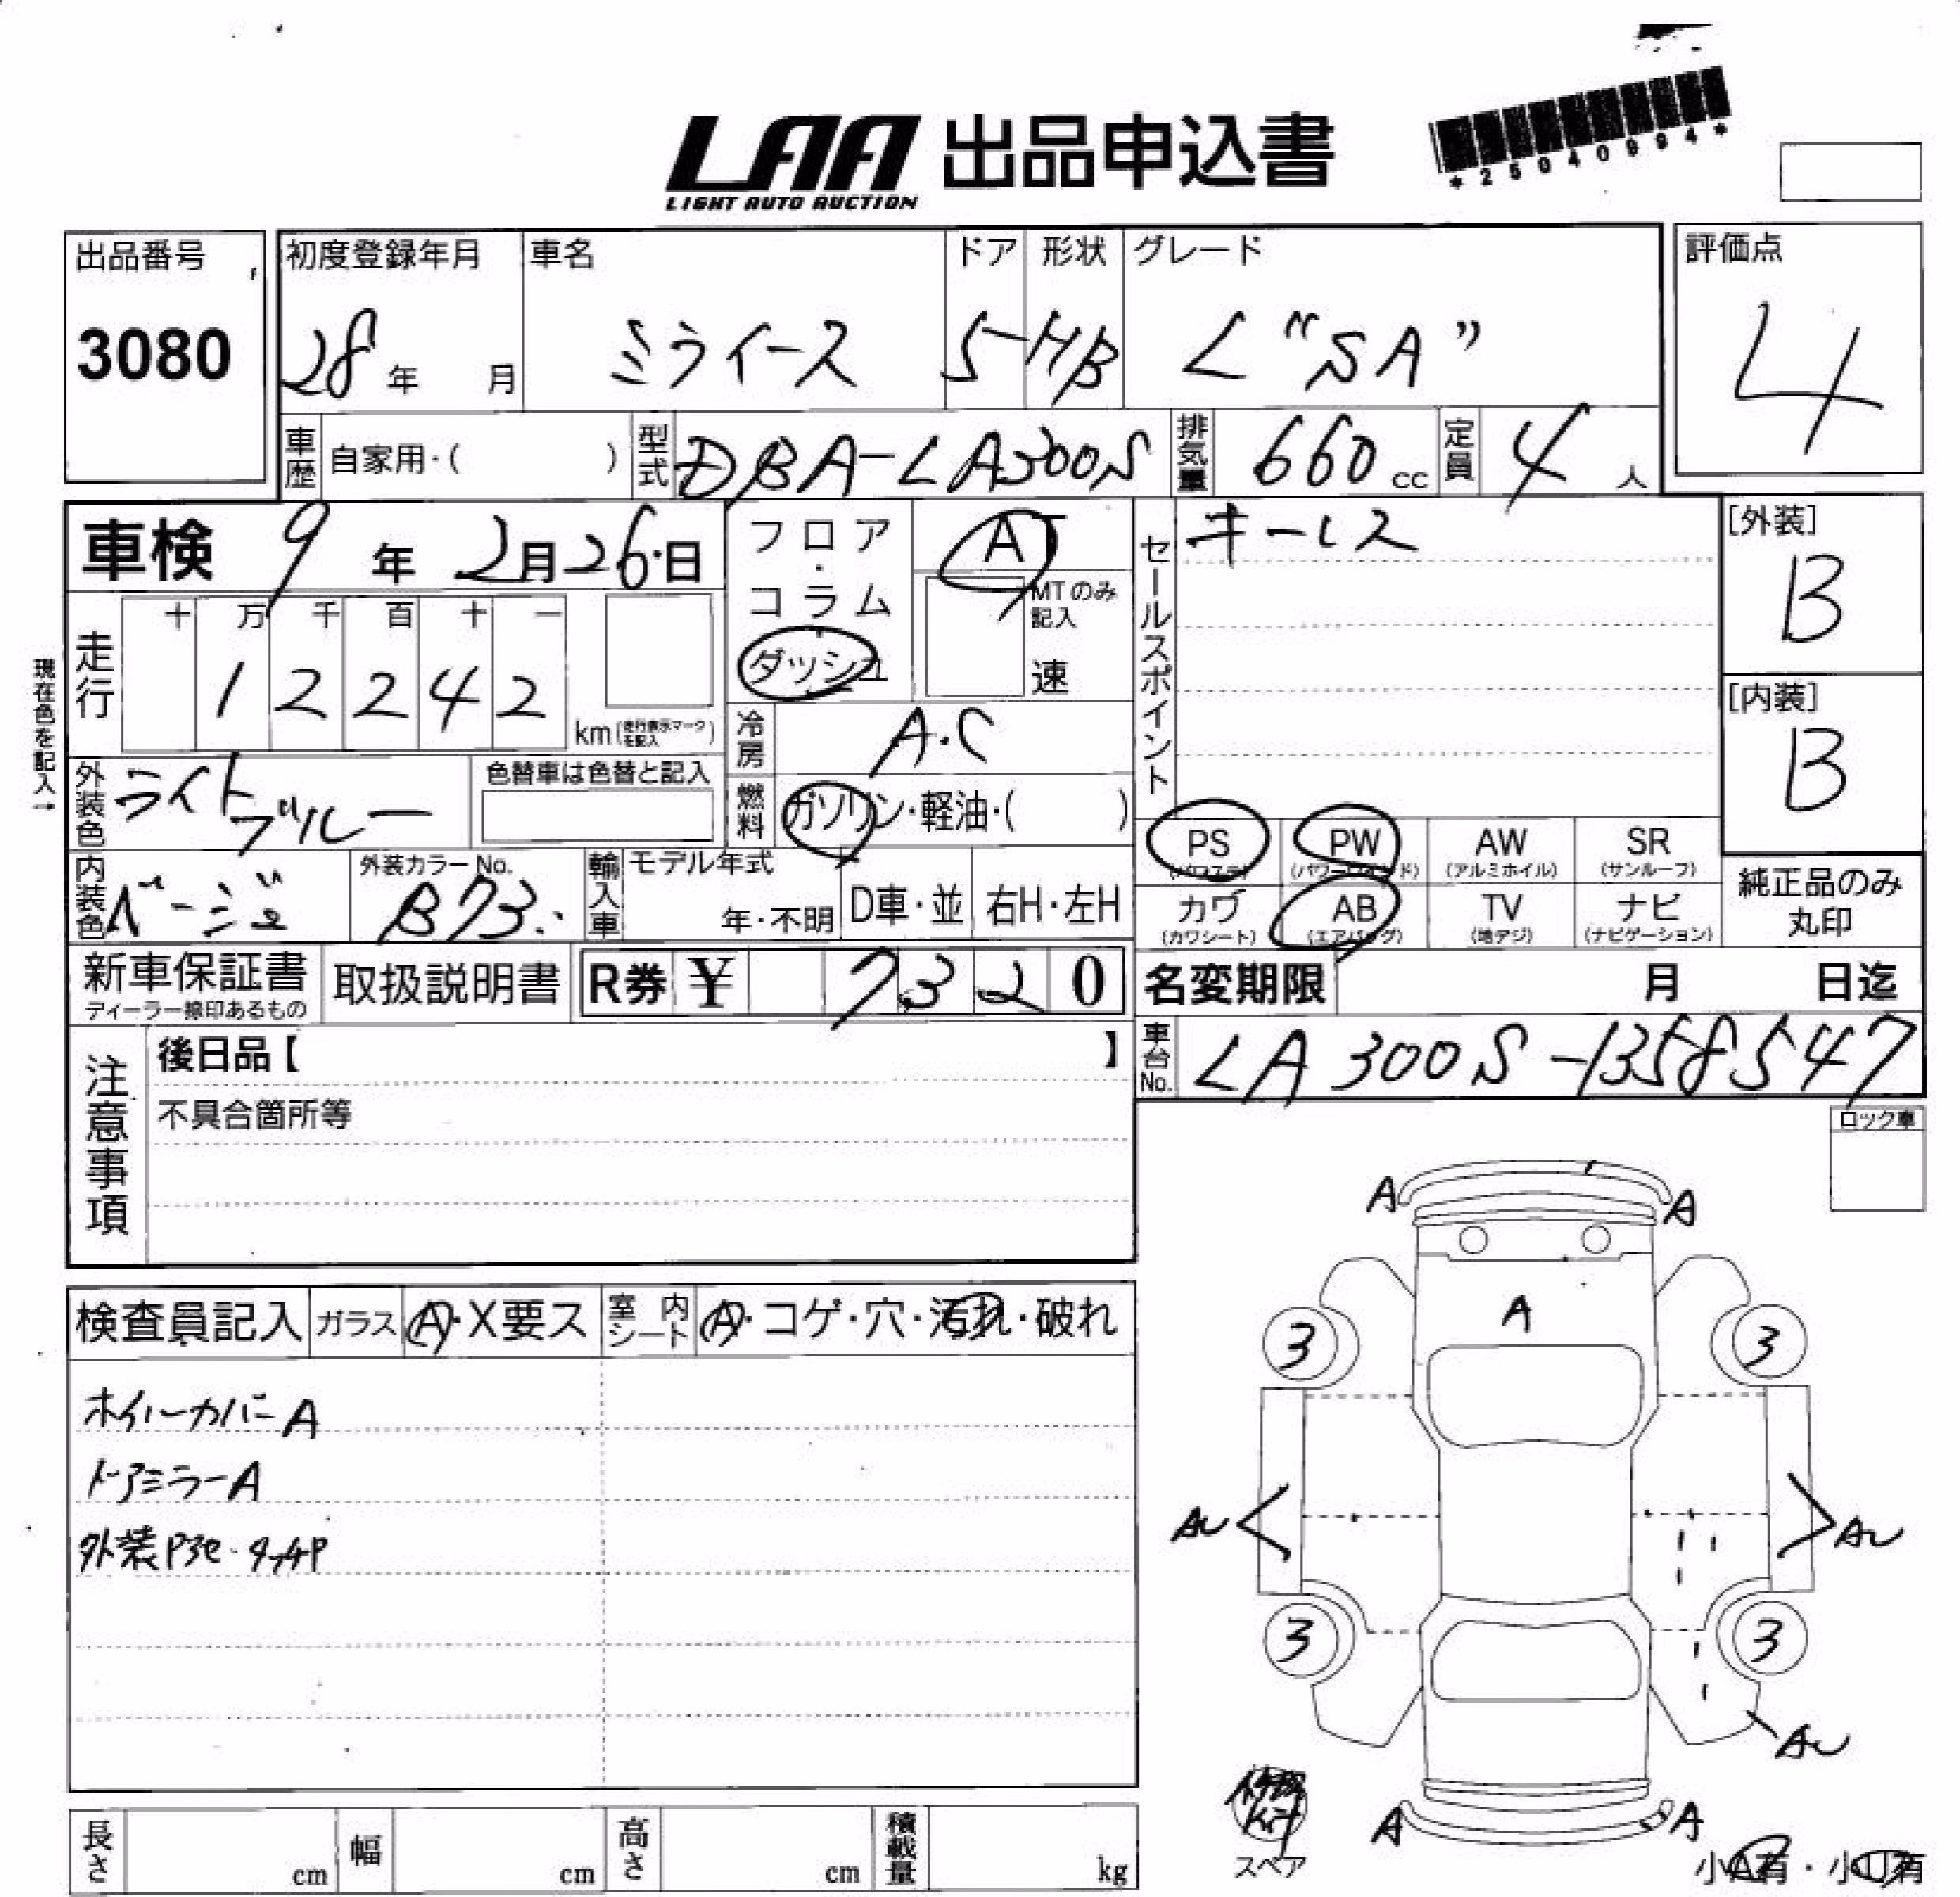 LAA 出品申込書
LIGHT AUTO AUCTION
*25040994*
出品番号
3080
初度登録年月
28年 月
車名
ミライース
ドア
5
形状
HB
グレード
L "SA"
評価点
4
車歴 自家用・( )
型式 DBA-LA300S
排気量 660 cc
定員 4 人
車検 9年 2月26日
フロア・コラム
ダッシュ
AT
MTのみ記入
速
セールスポイント
キーレス
[外装]
B
[内装]
B
現在色を記入→
走行
十 万 千 百 十 一
1 2 2 4 2
km(走行表示マークを記入)
冷房 A.C
外装色 ライトブルー
色替車は色替と記入
燃料 ガソリン・軽油・( )
PS (パワステ)
PW (パワーウインド)
AW (アルミホイル)
SR (サンルーフ)
カワ (カワシート)
AB (エアバッグ)
TV (地デジ)
ナビ (ナビゲーション)
純正品のみ丸印
内装色 ベージュ
外装カラーNo.
B73
輸入車
モデル年式
年・不明
D車・並
右H・左H
新車保証書
ディーラー捺印あるもの
取扱説明書
R券 ¥ 7320
名変期限 月 日迄
車台No. LA300S-1358547
注意事項
後日品【 】
不具合箇所等
ロック車
検査員記入
ガラス A・X要ス
室内シート A・コゲ・穴・汚れ・破れ
ホイールカバーA
ドアミラーA
外装P ・タッチP
A A
A
3 3
AU AU
3 3
AU
A A
スペア
小A有・小U有
長さ cm
幅 cm
高さ cm
積載量 kg